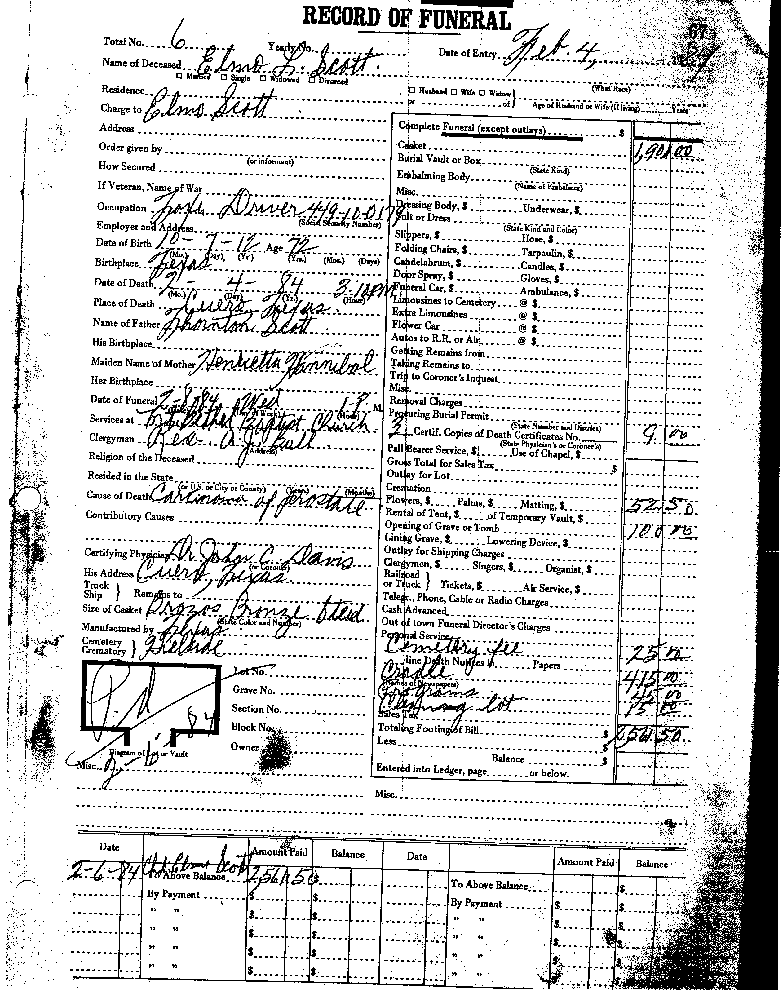 RECORD OF FUNERAL
Total No. 6 Yearly No. Date of Entry Feb. 4,
Name of Deceased Elmo L. Scott
Married Single Widowed Divorced
Residence Husband Wife Widow of (What Race)
Age of Husband or Wife (If living) Years
Charge to Elmo Scott
Address
Order given by (or informant)
How Secured
If Veteran, Name of War
Occupation Driver (Social Security Number)
Employer and Address
Date of Birth 10-7-12 Age 72
(Mo.) (Day) (Yr.) (Yrs.) (Mos.) (Days)
Birthplace Texas
Date of Death 2-4-84
(Mo.) (Day) (Yr.) (Hour)
Place of Death Cuero, Texas
Name of Father Thornton Scott
His Birthplace
Maiden Name of Mother Henrietta Hannibal
Her Birthplace
Date of Funeral 2-8-84 Wed M
Services at Baptist Church
Clergyman Rev. A. J.
(Address)
Religion of the Deceased
Resided in the State
(or U.S. or City or County) (Years) (Months)
Cause of Death Carcinoma of prostate
Contributory Causes
Certifying Physician Dr. John C. Davis
(or Coroner)
His Address Cuero, Texas
Truck Ship } Remains to
Size of Casket Brazos Bronze Steel
(State Color and Number)
Manufactured by
Cemetery Crematory }
Lot No.
Grave No.
Section No.
Block No.
Owner
Diagram of Lot or Vault
Misc.
Complete Funeral (except outlays) $
Casket 1,90
Burial Vault or Box
(State Kind)
Embalming Body
(Name of Embalmer)
Misc.
Dressing Body, $ Underwear, $
Suit or Dress
(State Kind and Color)
Slippers, $ Hose, $
Folding Chairs, $ Tarpaulin, $
Candelabrum, $ Candles, $
Door Spray, $ Gloves, $
Funeral Car, $ Ambulance, $
Limousines to Cemetery @ $
Extra Limousines @ $
Flower Car @ $
Autos to R.R. or Air @ $
Getting Remains from
Taking Remains to
Trip to Coroner's Inquest
Misc.
Removal Charges
Procuring Burial Permit
(State Number and District)
3 Certif. Copies of Death Certificates No. 9 00
(State Physician's or Coroner's)
Pall Bearer Service, $ Use of Chapel, $
Gross Total for Sales Tax $
Outlay for Lot
Cremation
Flowers, $ Palms, $ Matting, $ 52 50
Rental of Tent, $ of Temporary Vault, $
Opening of Grave or Tomb 100 00
Lining Grave, $ Lowering Device, $
Outlay for Shipping Charges
Clergymen, $ Singers, $ Organist, $
Railroad or Truck } Tickets, $ Air Service, $
Telegr., Phone, Cable or Radio Charges
Cash Advanced
Out of town Funeral Director's Charges
Personal Service
Cemetery fee 25 00
line Death Notices in Papers
(Names of Newspapers)
Cradle 415 00
Programs 45 00
Cleaning lot 15 00
Sales Tax
Totaling Footing of Bill $ 2,561 50
Less
Balance $
Entered into Ledger, page or below.
Misc.
Date Amount Paid Balance Date Amount Paid Balance
2-6-84 To Above Balance 2,561 50 $ To Above Balance $
By Payment $ $ By Payment $ $
" " $ $ " " $ $
" " $ $ " " $ $
" " $ $ " " $ $
" " $ $ " " $ $